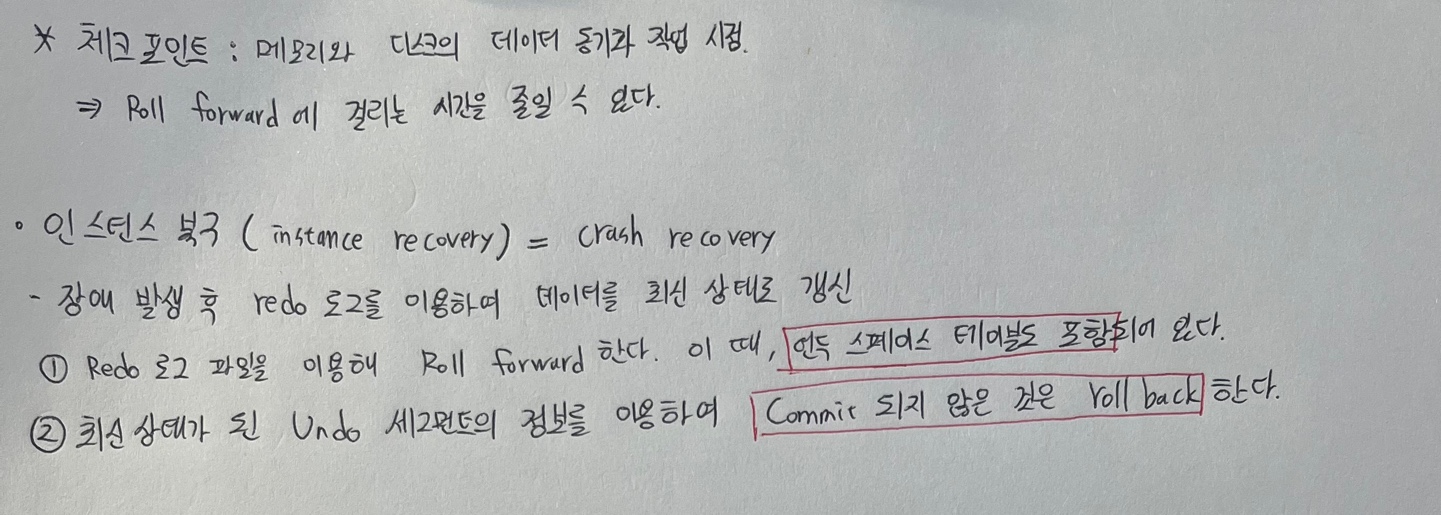 * 체크 포인트 : 메모리와 디스크의 데이터 동기화 작업 시점.
⇒ Roll forward 에 걸리는 시간을 줄일 수 있다.
• 인스턴스 복구 ( instance recovery) = crash recovery
- 장애 발생 후 redo 로그를 이용하여 데이터를 최신 상태로 갱신
① Redo 로그 파일을 이용해 Roll forward 한다. 이 때, 언두 스페이스 테이블도 포함되어 있다.
② 최신 상태가 된 Undo 세그먼트의 정보를 이용하여 Commit 되지 않은 것은 roll back 한다.